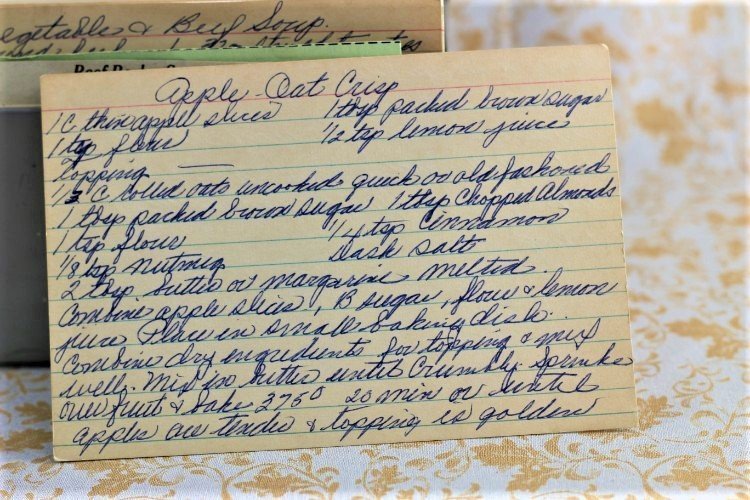 Vegetables & Beef Soup.
Apple Oat Crisp
1 C thin apple slices 1 tbsp packed brown sugar
1 tsp flour 1/2 tsp lemon juice
Topping
1/3 C rolled oats uncooked quick or old fashioned
1 tbsp packed brown sugar 1 tbsp Chopped Almonds
1 tsp flour 1/4 tsp Cinnamon
1/8 tsp nutmeg Dash Salt
2 tbsp butter or margarine melted.
Combine apple slices, B sugar, flour & lemon
juice Place in small baking dish.
Combine dry ingredients for topping & mix
well. Mix in butter until Crumbly. Sprinke
over fruit & bake 375° 20 min or until
apples are tender & topping is golden